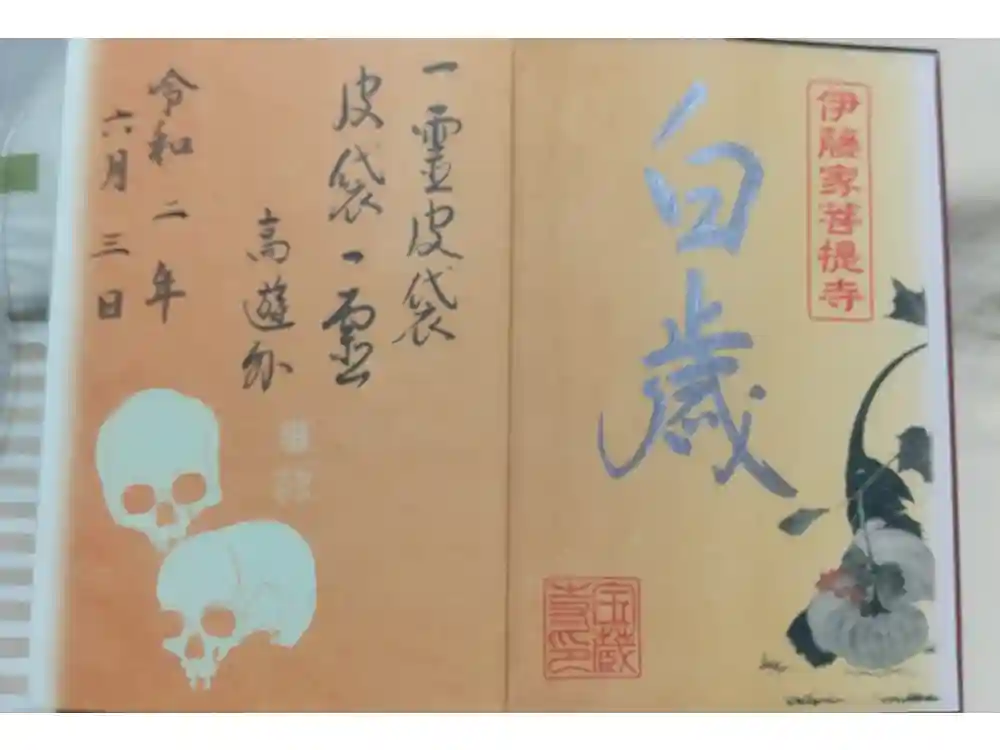 伊藤家菩提寺
白歳
宝蔵
寺印
一霊皮袋
皮袋一霊
高遊外
令和二年
六月三日